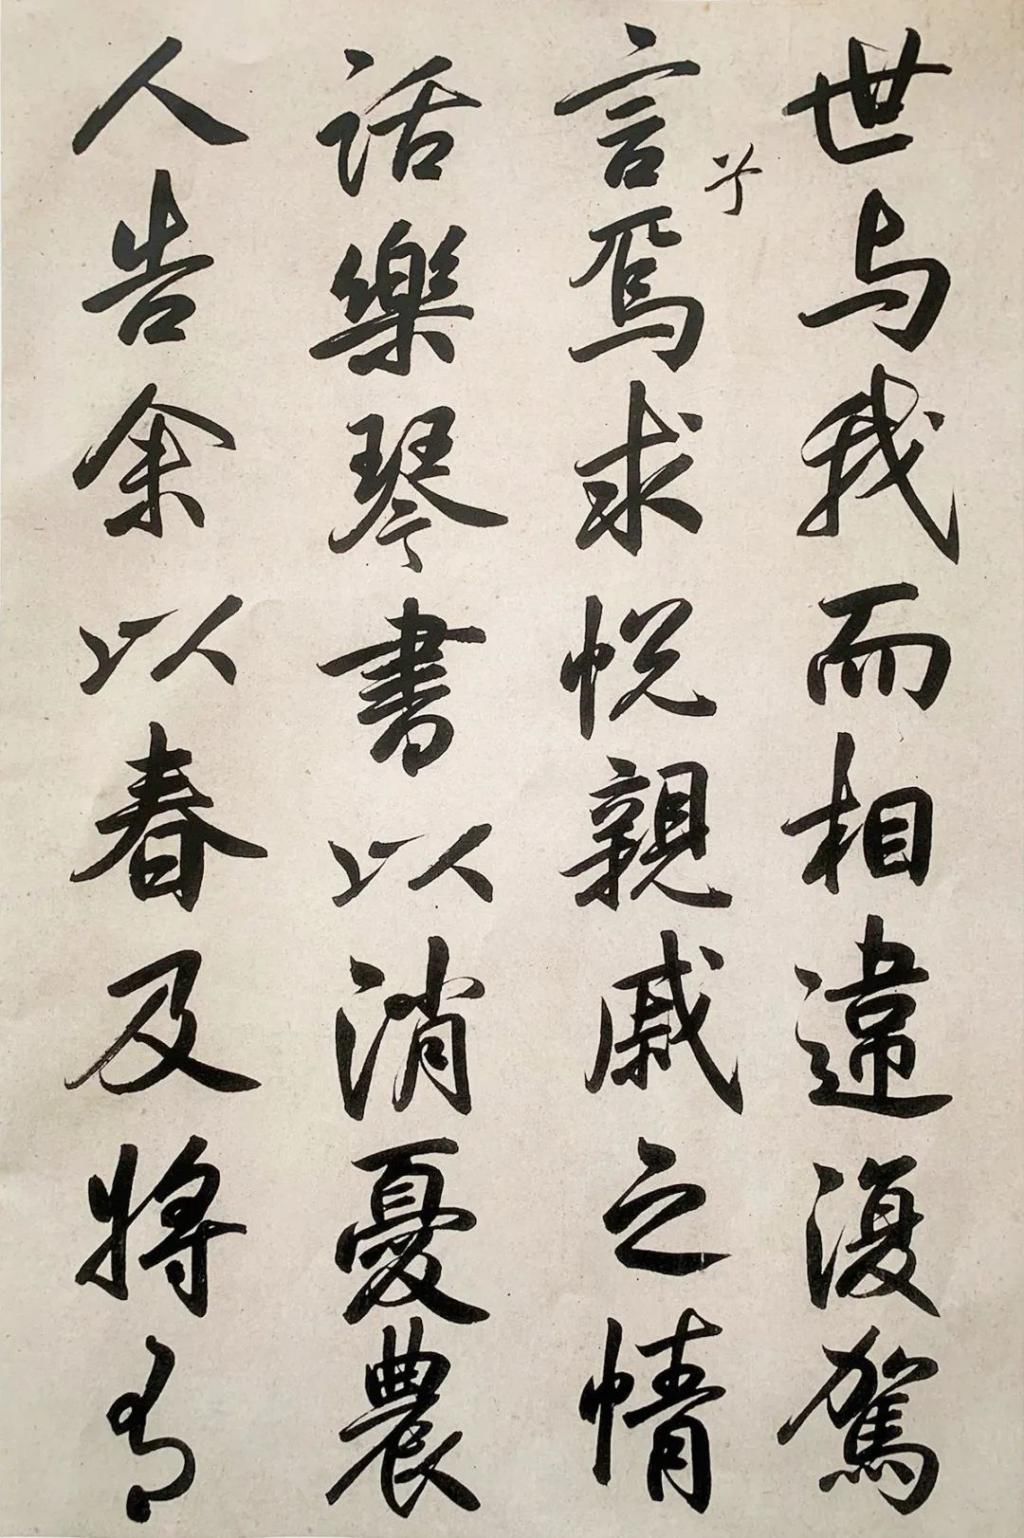 世与我而相違復駕
言兮焉求悦親戚之情
話樂琴書以消憂農
人告余以春及將有